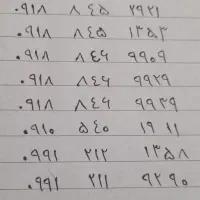 ۰۹۱۸ ۸۴۵ ۲۹۲۱
۰۹۱۸ ۸۴۵ ۱۳۵۳
۰۹۱۸ ۸۴۶ ۹۹۰۹
۰۹۱۸ ۸۴۶ ۹۹۲۹
۰۹۱۸ ۸۴۶ ۹۹۳۹
۰۹۱۰ ۵۴۰ ۱۹ ۱۱
۰۹۹۱ ۲۱۲ ۱۳۵۸
۰۹۹۱ ۲۱۱ ۹۲۹۰